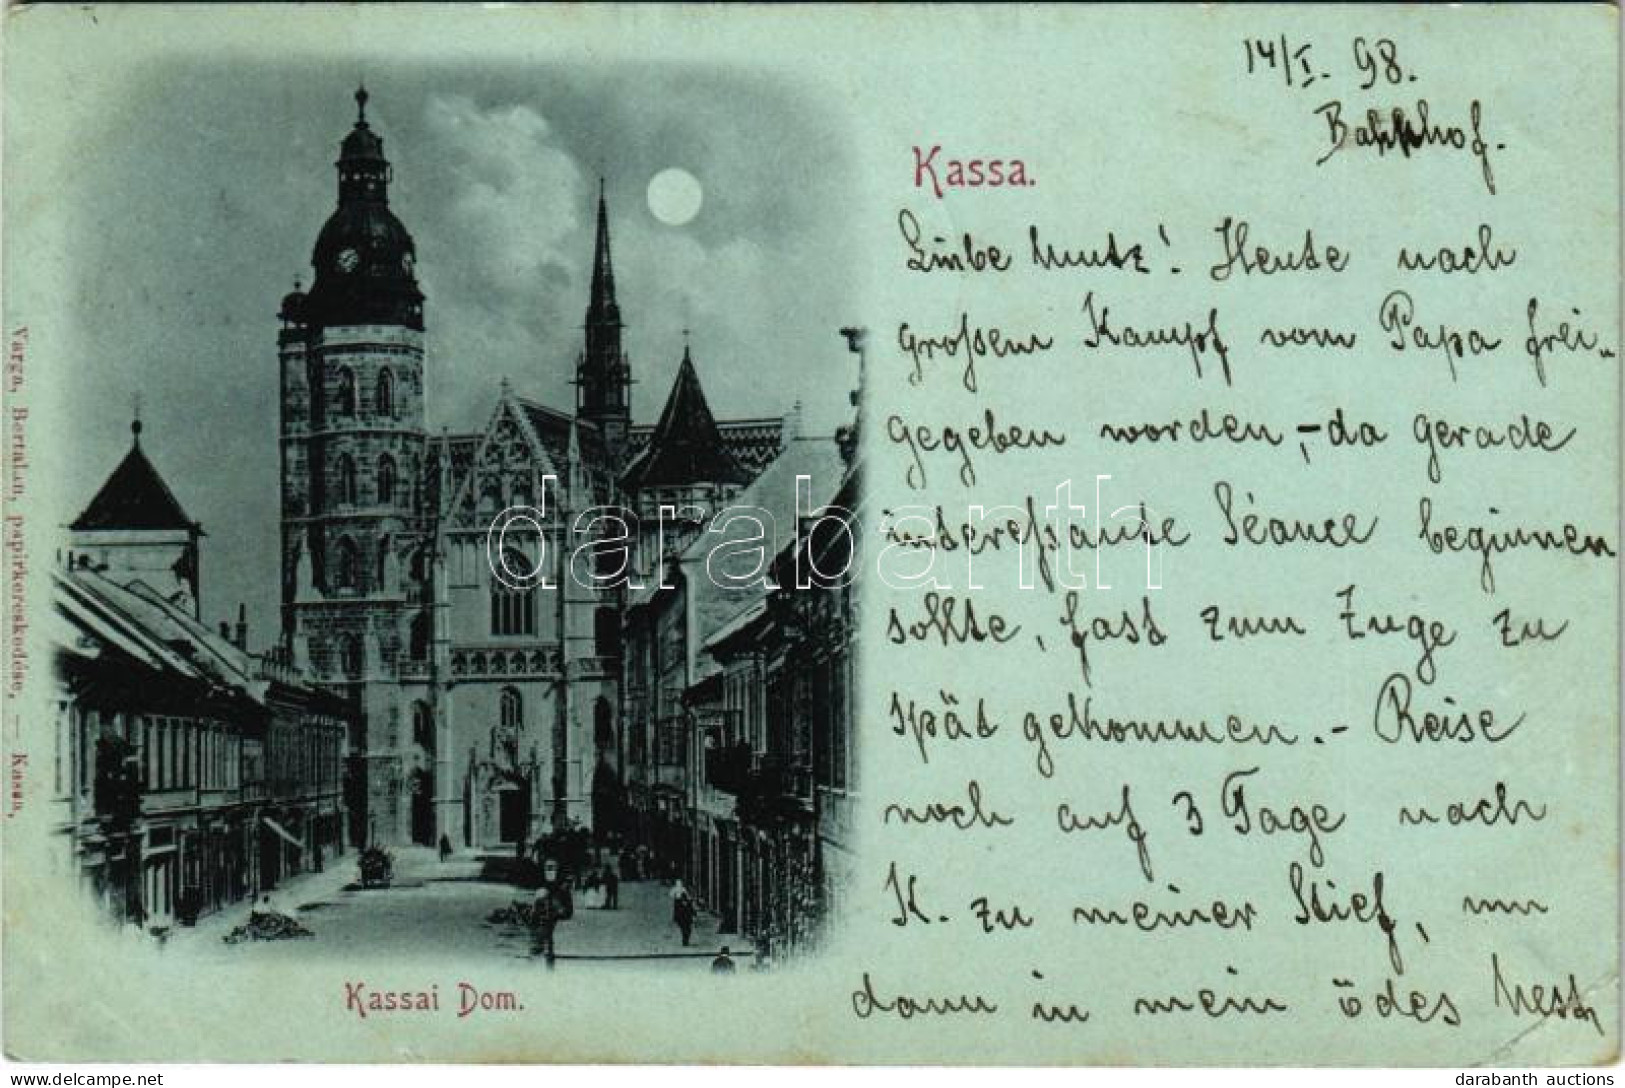 14/I. 98.
Bahnhof.
Kassa.
Liebe Mutz! Heute nach
großem Kampf vom Papa frei„
gegeben worden, – da gerade
interessante Séance beginnen
sollte, fast zum Zuge zu
spät gekommen. – Reise
noch auf 3 Tage nach
K. zu meiner Stief, um
dann in mein ödes Nest
Kassai Dom.
Varga, Bertalan, papirkereskedése, — Kassa,
darabanth
darabanth auctions